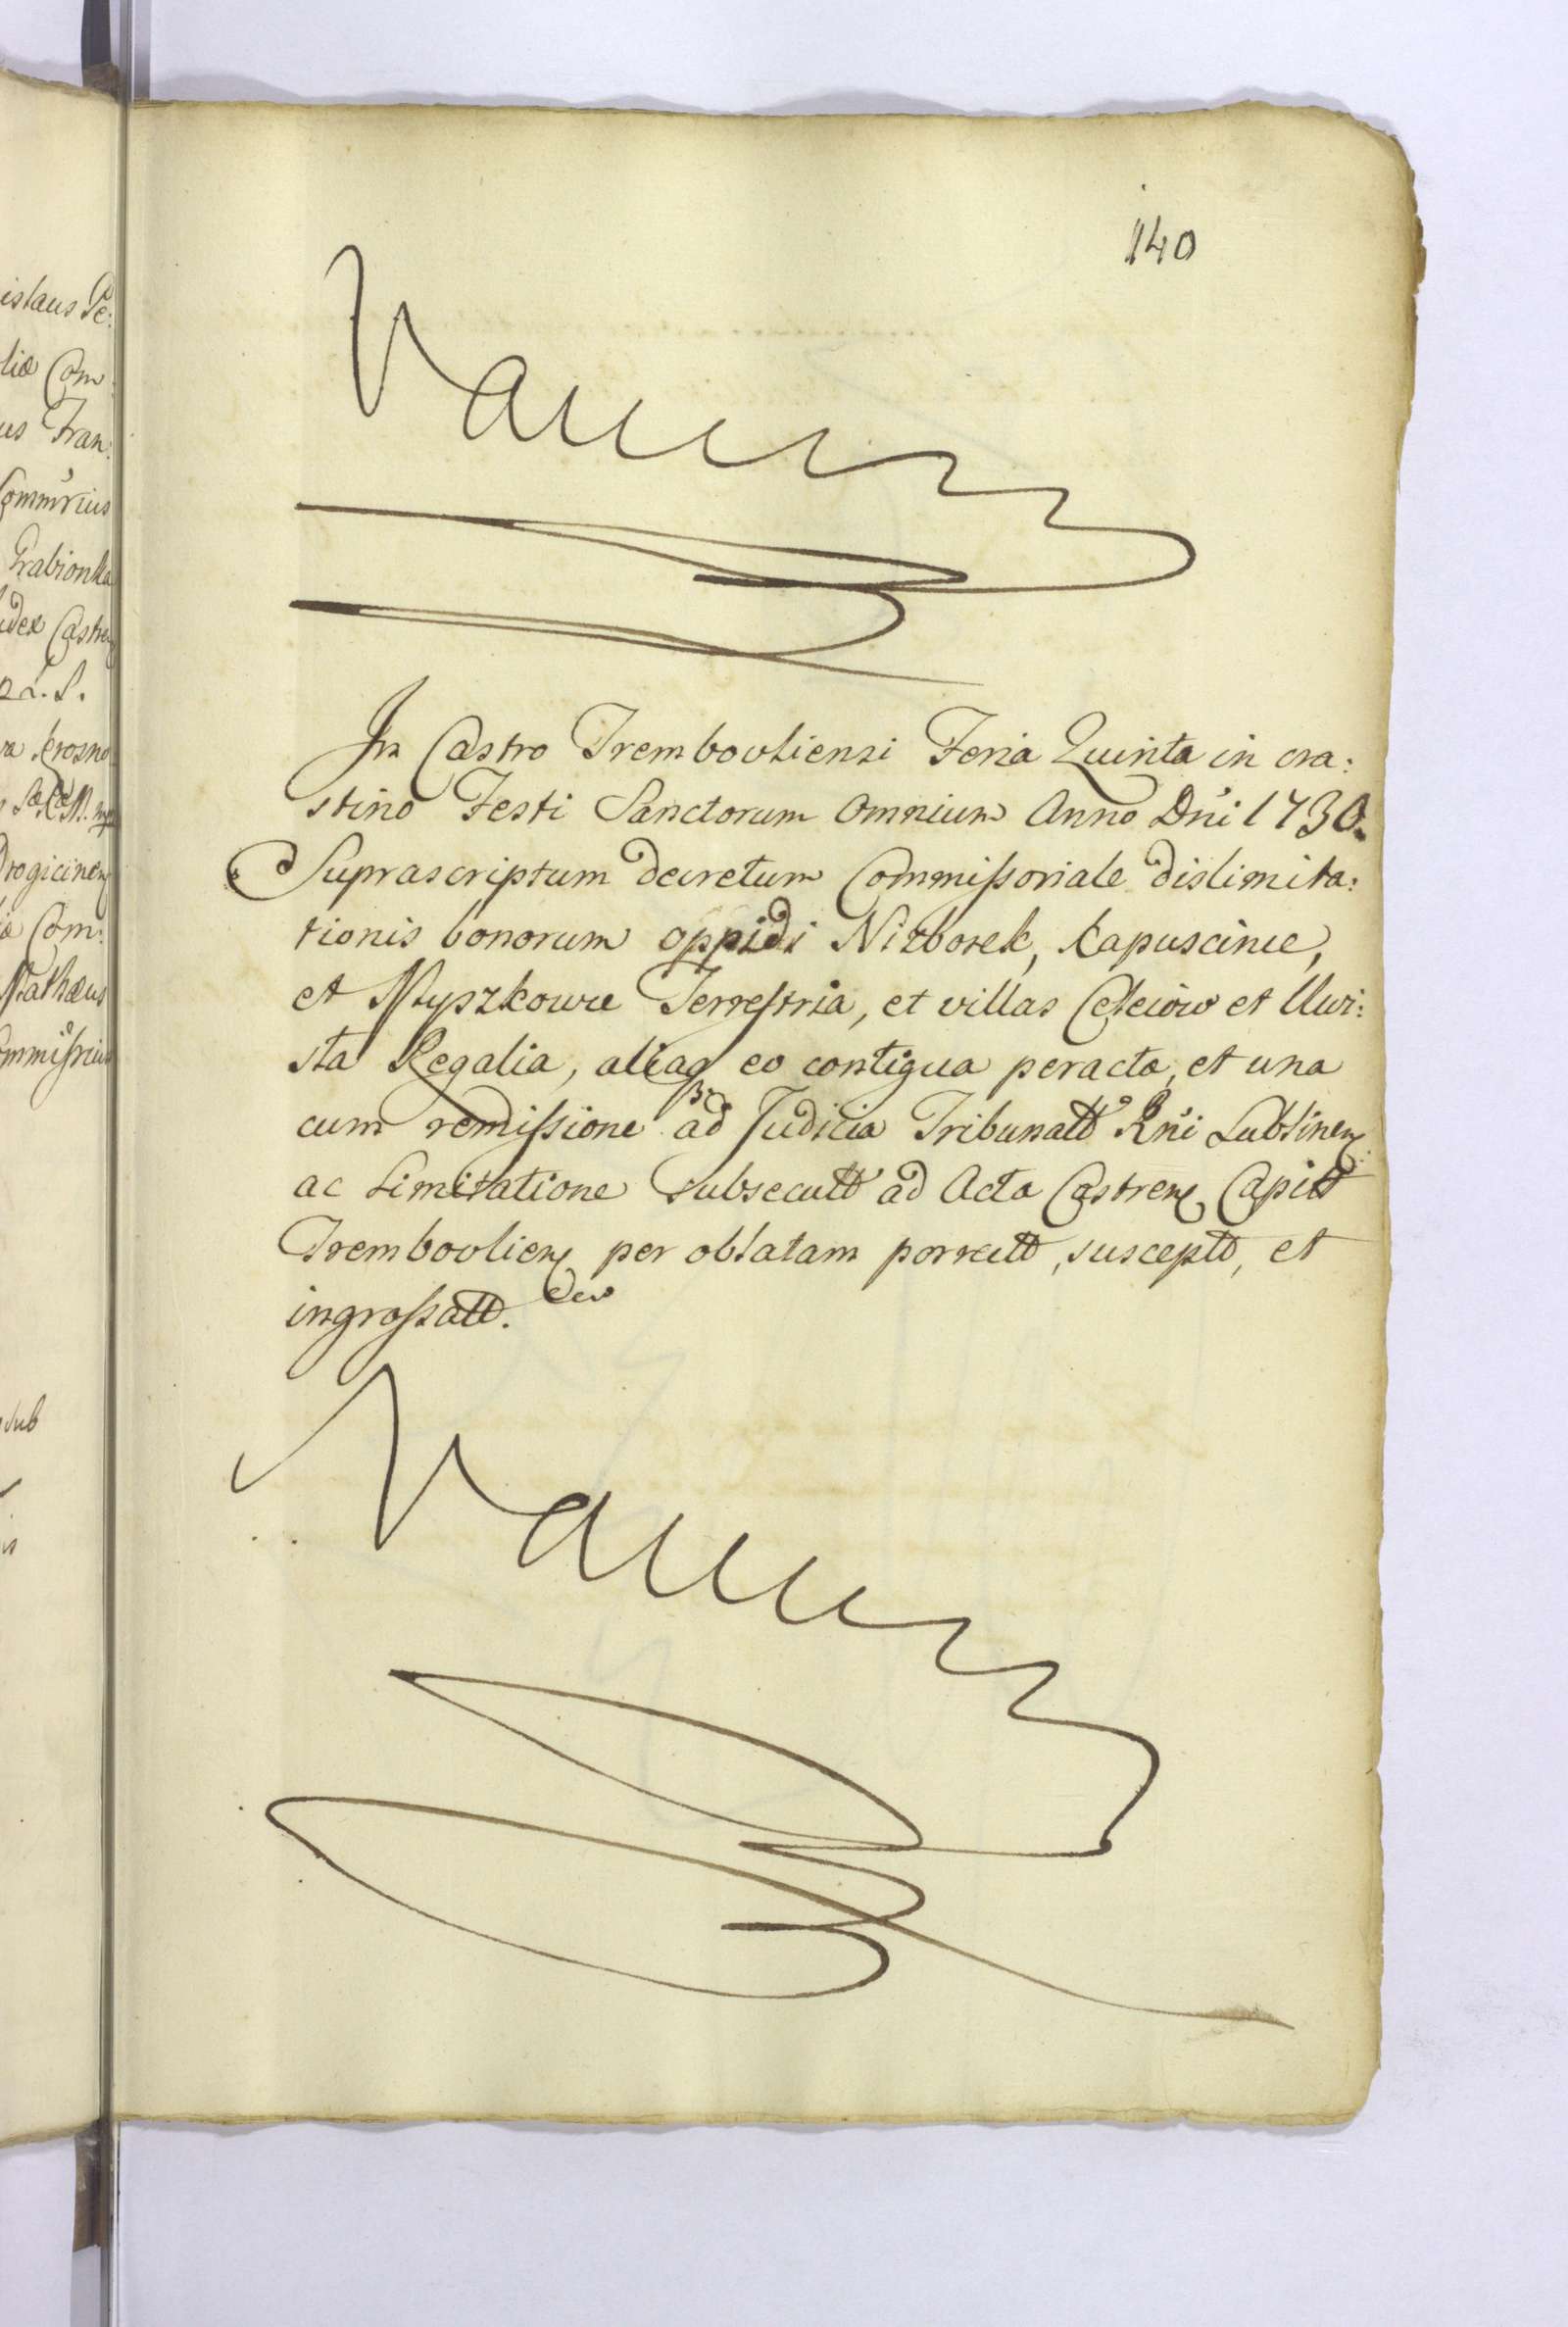 islaus Pe:
liæ Com
us Fran:
Commrius
Grabionka
udex Castren
L. S.
ra Krosno
Drogicinen
ia Com:
Mathæus
ommissrius
sub
140
In Castro Trembovliensi Feria Quinta in cra:
stino Festi Sanctorum Omnium Anno Dni 1730.
Suprascriptum decretum Commissoriale dislimita:
tionis bonorum oppidi Nizborek, Kapuscince,
et Myszkowce Terrestria, et villas Celejow et Uwi:
sta Regalia, aliaq eo contigua peracta, et una
cum remissione ad Judicia Tribunatt Rni Lublinen
ac limitatione subsecutt ad Acta Castren Capitt
Trembovlien per oblatam porrectt, susceptt, et
ingrossatt.